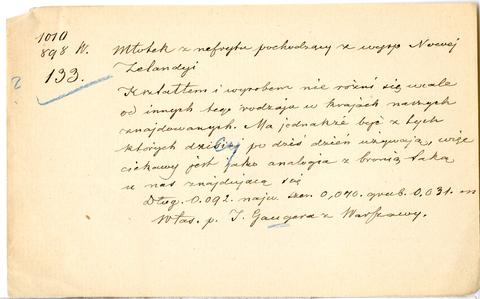 1010
898 W.
?
133.
Młotek z nefrytu pochodzący z wysp Nowej
Zelandyi
Kształtem i wyrobem nie różni się wcale
od innych tego rodzaju w krajach naszych
znajdowanych. Ma jednakże być z tych
których dzicy po dziś dzień używają, więc
ciekawy jest jako analogia z bronią taką
u nas znajdującą się
Dług. 0.092. najw. szer. 0,040. grub. 0,031. m
Włas. p. J. Gaugera z Warszawy.